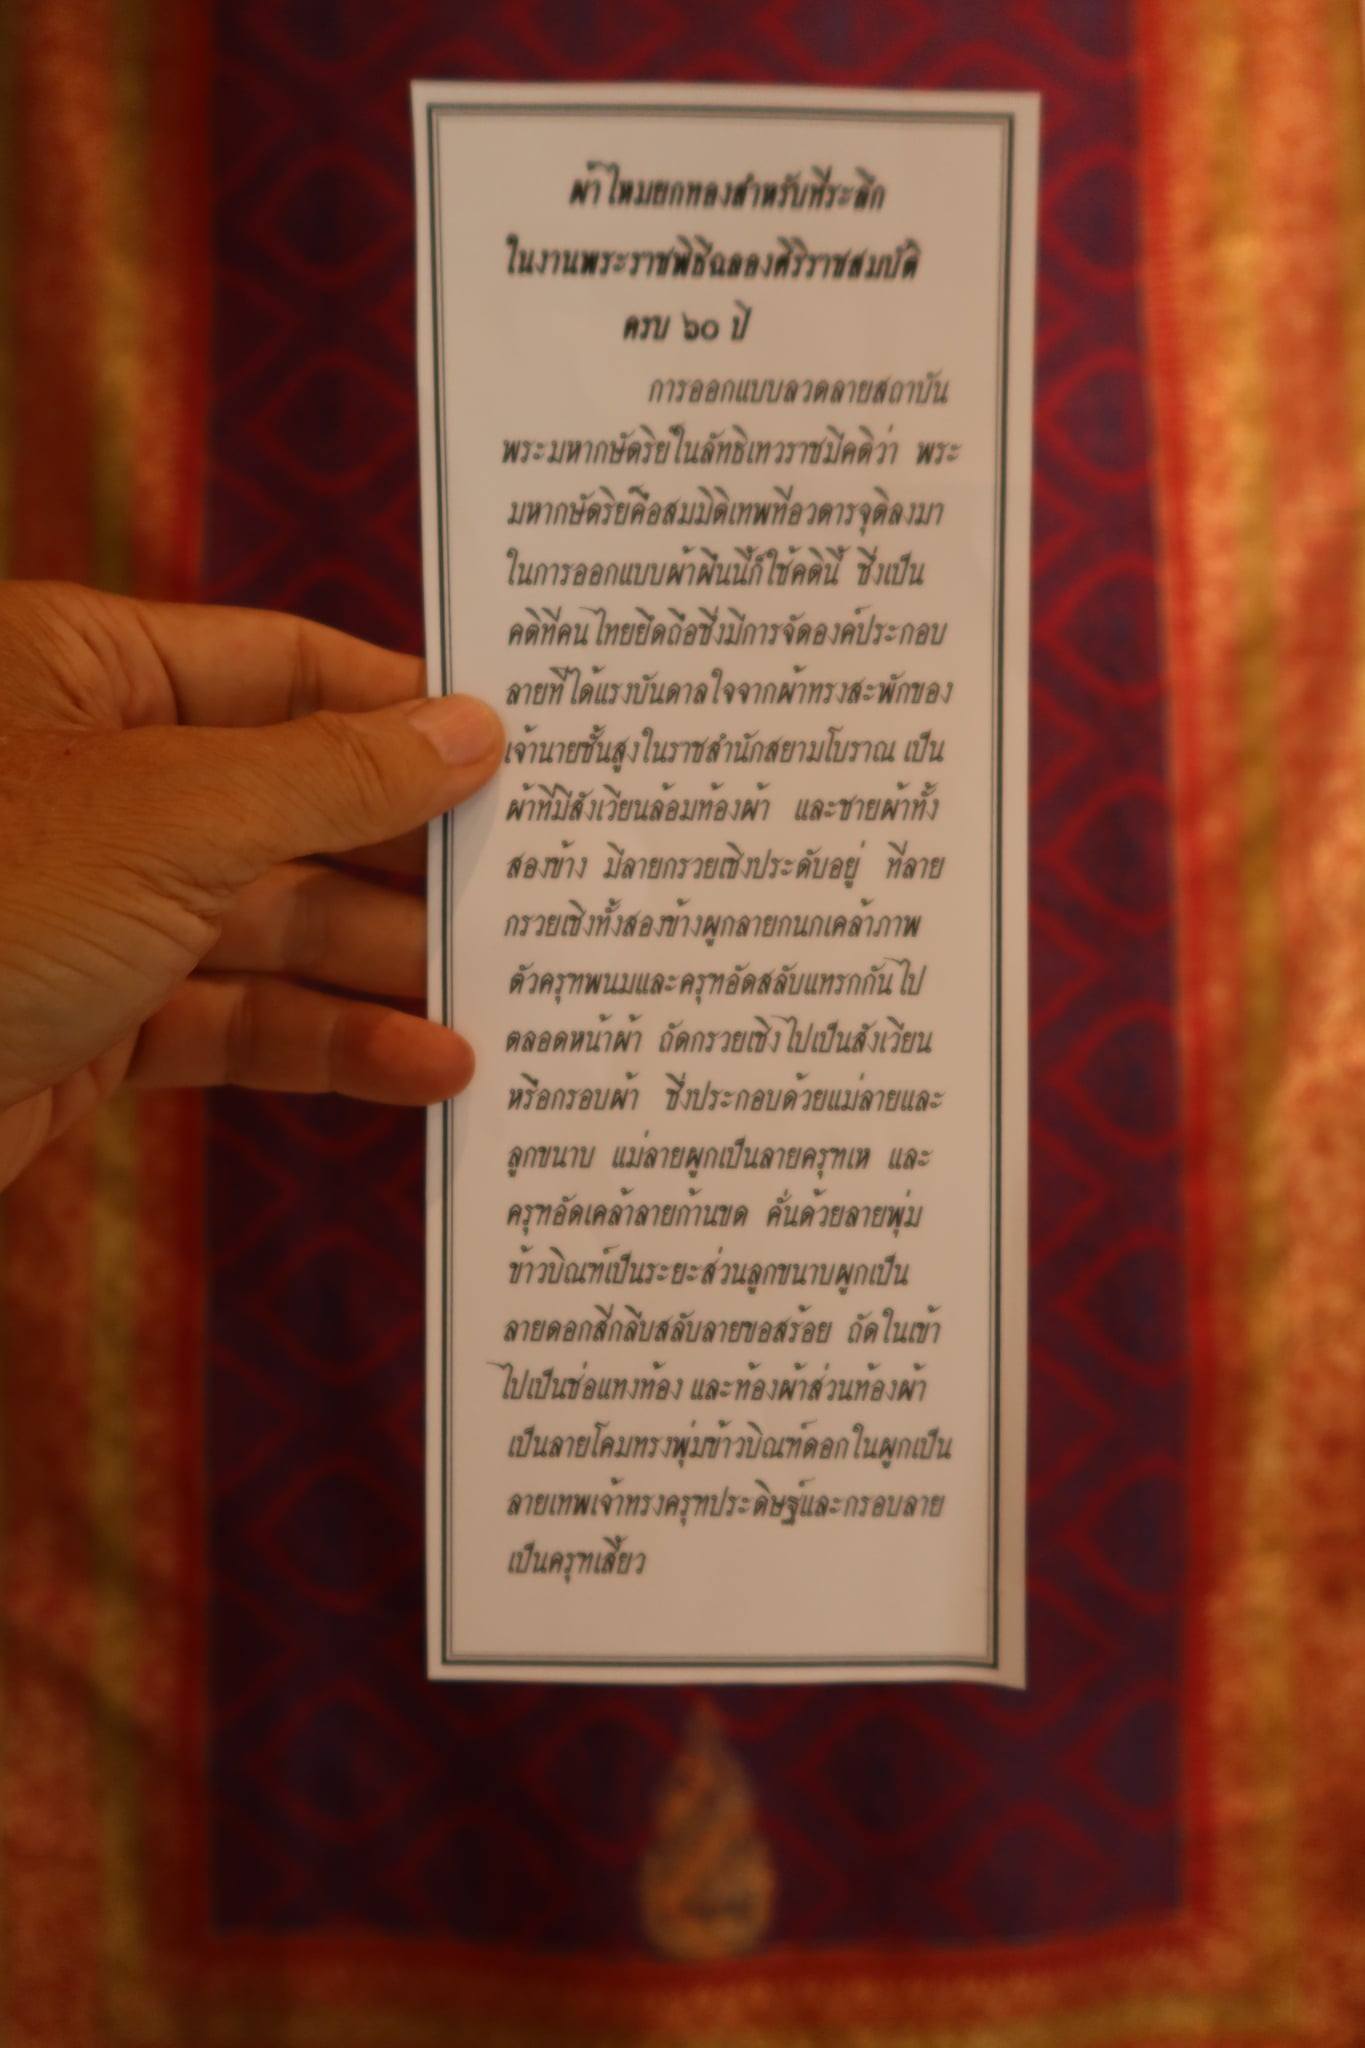 ผ้าไหมยกทองสำหรับที่ระลึก
ในงานพระราชพิธีฉลองศิริราชสมบัติ
ครบ ๖๐ ปี
การออกแบบลวดลายสถาบัน
พระมหากษัตริย์ในลัทธิเทวราชมีคติว่า พระ
มหากษัตริย์คือสมมิติเทพที่อวตารจุติลงมา
ในการออกแบบผ้าผืนนี้ก็ใช้คตินี้ ซึ่งเป็น
คติที่คนไทยยึดถือซึ่งมีการจัดองค์ประกอบ
ลายที่ได้แรงบันดาลใจจากผ้าทรงสะพักของ
เจ้านายชั้นสูงในราชสำนักสยามโบราณ เป็น
ผ้าที่มีสังเวียนล้อมท้องผ้า และชายผ้าทั้ง
สองข้าง มีลายกรวยเชิงประดับอยู่ ที่ลาย
กรวยเชิงทั้งสองข้างผูกลายกนกเคล้าภาพ
ตัวครุฑพนมและครุฑอัดสลับแทรกกันไป
ตลอดหน้าผ้า ถัดกรวยเชิงไปเป็นสังเวียน
หรือกรอบผ้า ซึ่งประกอบด้วยแม่ลายและ
ลูกขนาบ แม่ลายผูกเป็นลายครุฑเห และ
ครุฑอัดเคล้าลายก้านขด คั่นด้วยลายพุ่ม
ข้าวบิณฑ์เป็นระยะส่วนลูกขนาบผูกเป็น
ลายดอกสี่กลีบสลับลายขอสร้อย ถัดในเข้า
ไปเป็นช่อแทงท้อง และท้องผ้าส่วนท้องผ้า
เป็นลายโคมทรงพุ่มข้าวบิณฑ์ดอกในผูกเป็น
ลายเทพเจ้าทรงครุฑประดิษฐ์และกรอบลาย
เป็นครุฑเสี้ยว